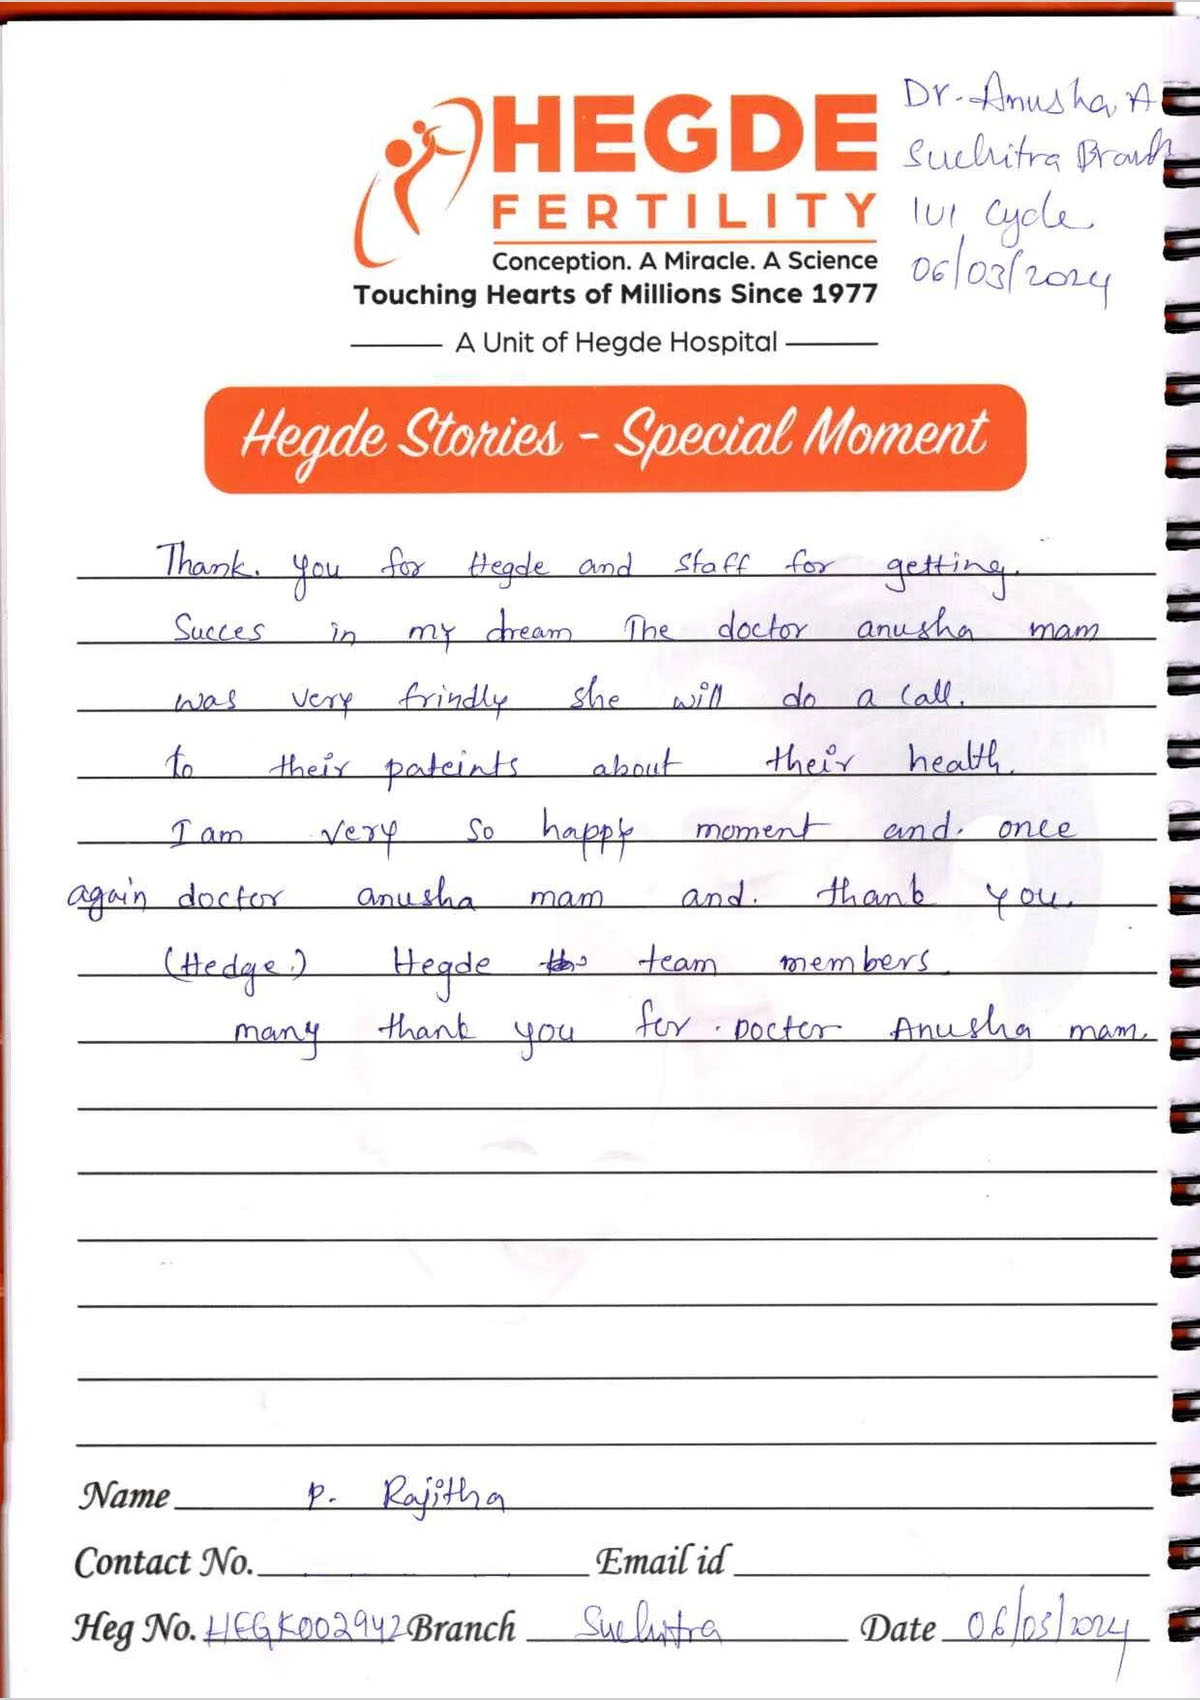 HEGDE
FERTILITY
Conception. A Miracle. A Science
Touching Hearts of Millions Since 1977
A Unit of Hegde Hospital
Dr. Anusha. A
Suchitra Branch
IUI Cycle
06/03/2024
Hegde Stories - Special Moment
Thank. you for Hegde and staff for getting.
Succes in my dream The doctor anusha mam
was very frindly she will do a call.
to their pateints about their health.
I am very so happy moment and. once
again doctor anusha mam and. thank you.
(Hedge.) Hegde team members
many thank you for. Doctor Anusha mam.
Name P. Rajitha
Contact No. Email id
Heg No. HEGK002942 Branch Suchitra Date 06/05/2024